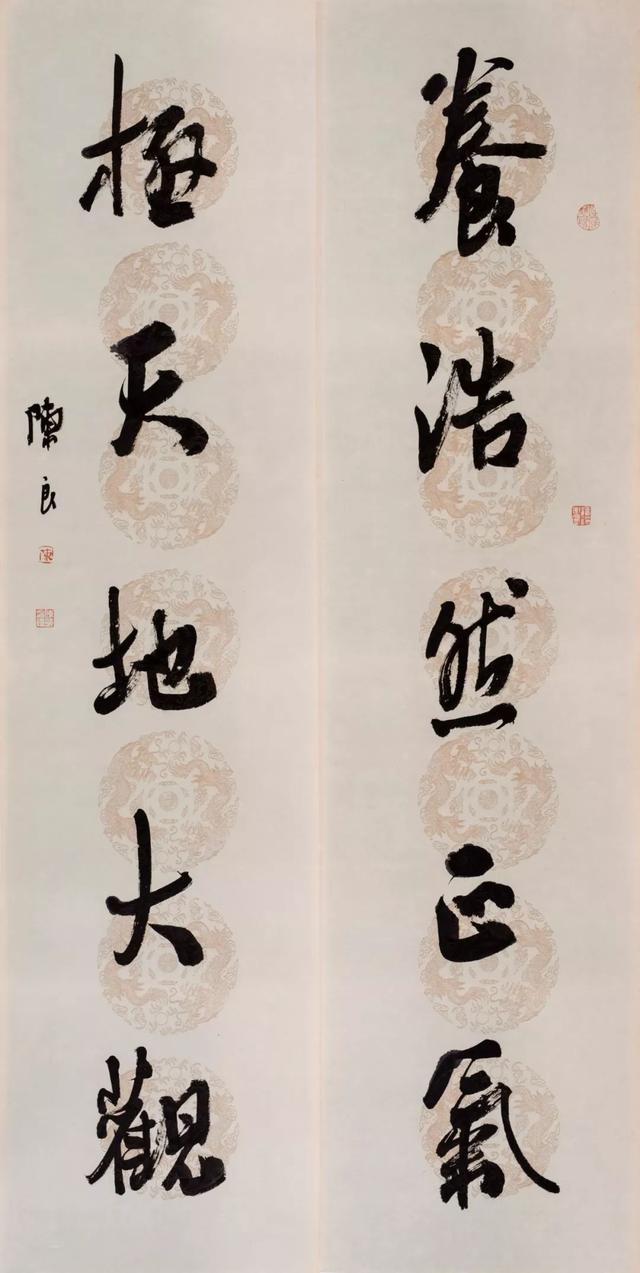 養浩然正氣
極天地大觀
陳良